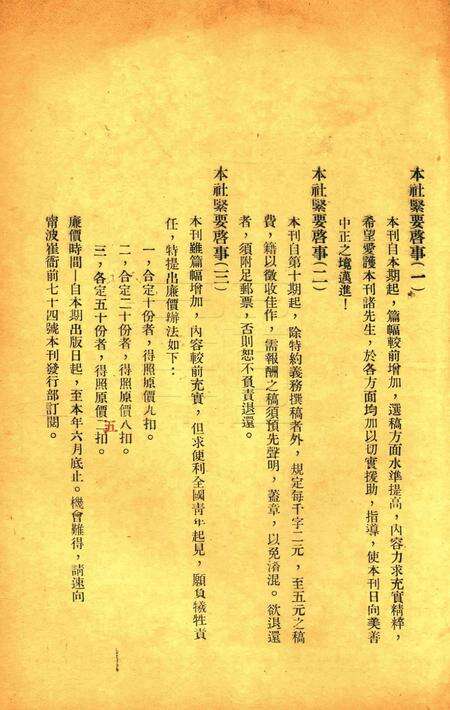 本社緊要啓事(一)
本刊自本期起，篇幅較前增加，選稿方面水準提高，內容力求充實精粹，
希望愛護本刊諸先生，於各方面均加以切實援助，指導，使本刊日向美善
中正之境邁進！
本社緊要啓事(二)
本刊自第十期起，除特約義務撰稿者外，規定每千字二元，至五元之稿
費，藉以徵收佳作，需報酬之稿須預先聲明，蓋章，以免淆混。欲退還
者，須附足郵票，否則恕不負責退還。
本社緊要啓事(三)
本刊雖篇幅增加，內容較前充實，但求便利全國青年起見，願負犧牲責
任，特提出廉價辦法如下：
一，合定十份者，得照原價九扣。
二，合定二十份者，得照原價八扣。
三，各定五十份者，得照原價五扣。
廉價時間—自本期出版日起，至本年六月底止。機會難得，請速向
甯波崔衙前七十四號本刊發行部訂閱。